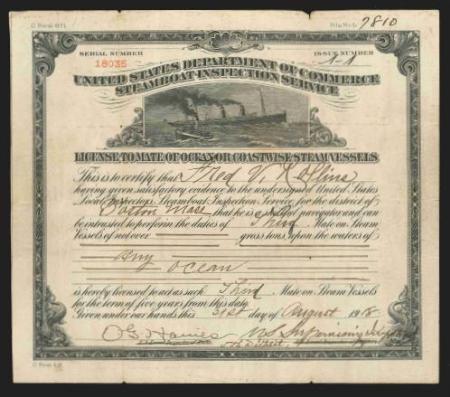 File No. 7810
SERIAL NUMBER
18035
ISSUE NUMBER
1-1
UNITED STATES DEPARTMENT OF COMMERCE
STEAMBOAT-INSPECTION SERVICE
LICENSE TO MATE OF OCEAN OR COASTWISE STEAM VESSELS.
This is to certify that Fred V. Collins
having given satisfactory evidence to the undersigned United States
Local Inspectors, Steamboat Inspection Service for the district of
Boston Mass that he is a skillful navigator and can
be intrusted to perform the duties of Third Mate on Steam
Vessels of not over gross tons, upon the waters of
Any
Ocean
is hereby licensed to act as such Third Mate on Steam Vessels
for the term of five years from this date.
Given under our hands this 31st day of August 1918